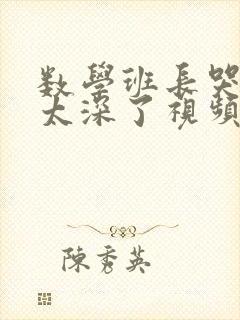 数學班長哭
太深了視頻
陳秀英